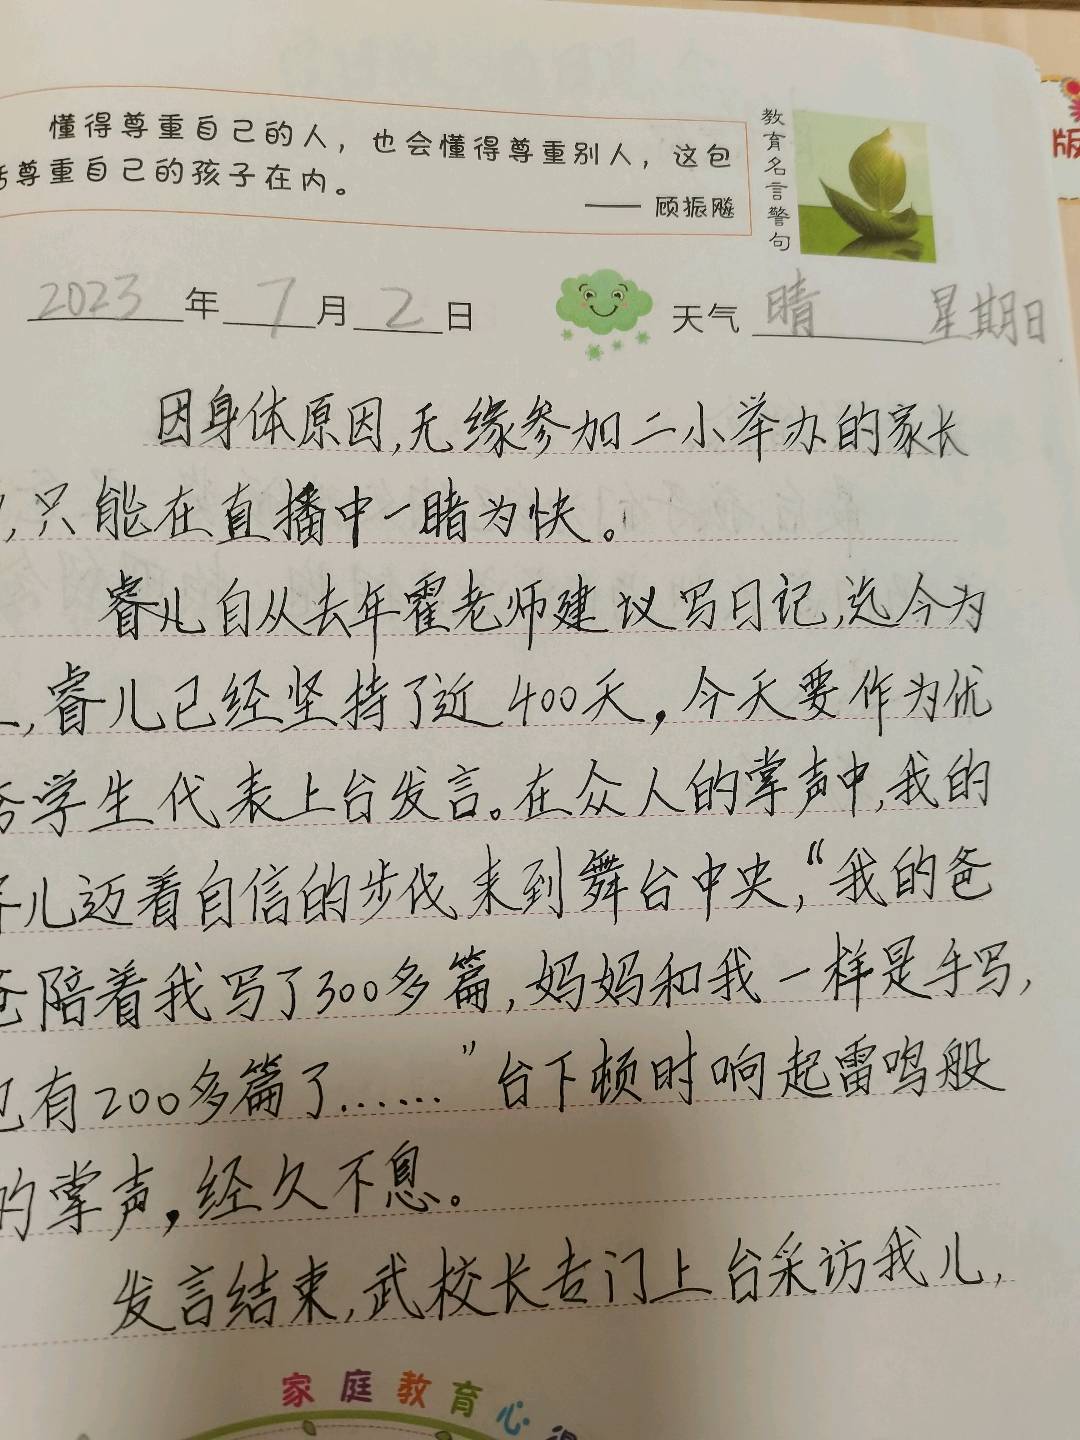 懂得尊重自己的人，也会懂得尊重别人，这包
括尊重自己的孩子在内。
—— 顾振飚
教育名言警句
版
2023年7月2日 天气 晴 星期日
因身体原因,无缘参加二小举办的家长
,只能在直播中一睹为快。
睿儿自从去年霍老师建议写日记,迄今为
,睿儿已经坚持了近400天,今天要作为优
秀学生代表上台发言。在众人的掌声中,我的
儿迈着自信的步伐来到舞台中央,“我的爸
爸陪着我写了300多篇,妈妈和我一样是手写,
也有200多篇了……”台下顿时响起雷鸣般
的掌声,经久不息。
发言结束,武校长专门上台采访我儿,
家庭教育心得